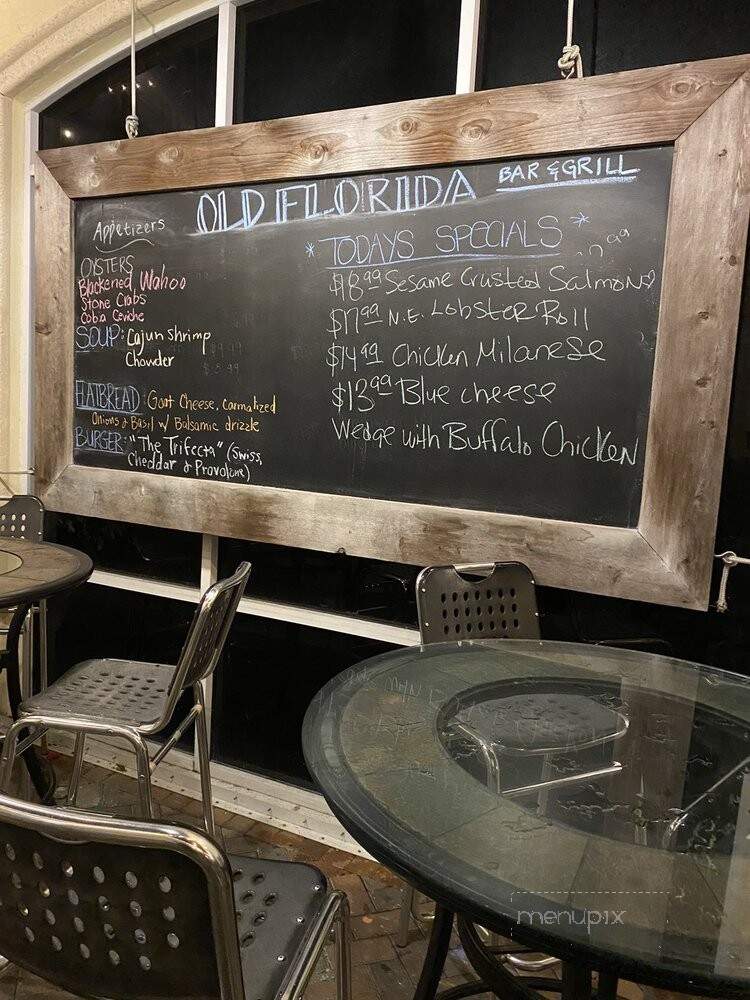 OLD FLORIDA BAR & GRILL
Appetizers
OYSTERS
Blackened Wahoo
Stone Crabs
Cobia Ceviche
SOUP: Cajun Shrimp
Chowder
FLATBREAD: Goat Cheese, Carmalized
Onions & Basil w/ Balsamic drizzle
BURGER: "The Trifecta" (Swiss,
Cheddar & Provolone)
*TODAYS SPECIALS*
$18.99 Sesame Crusted Salmon
$17.99 N.E. Lobster Roll
$14.99 Chicken Milanese
$13.99 Blue cheese
Wedge with Buffalo Chicken
menupix